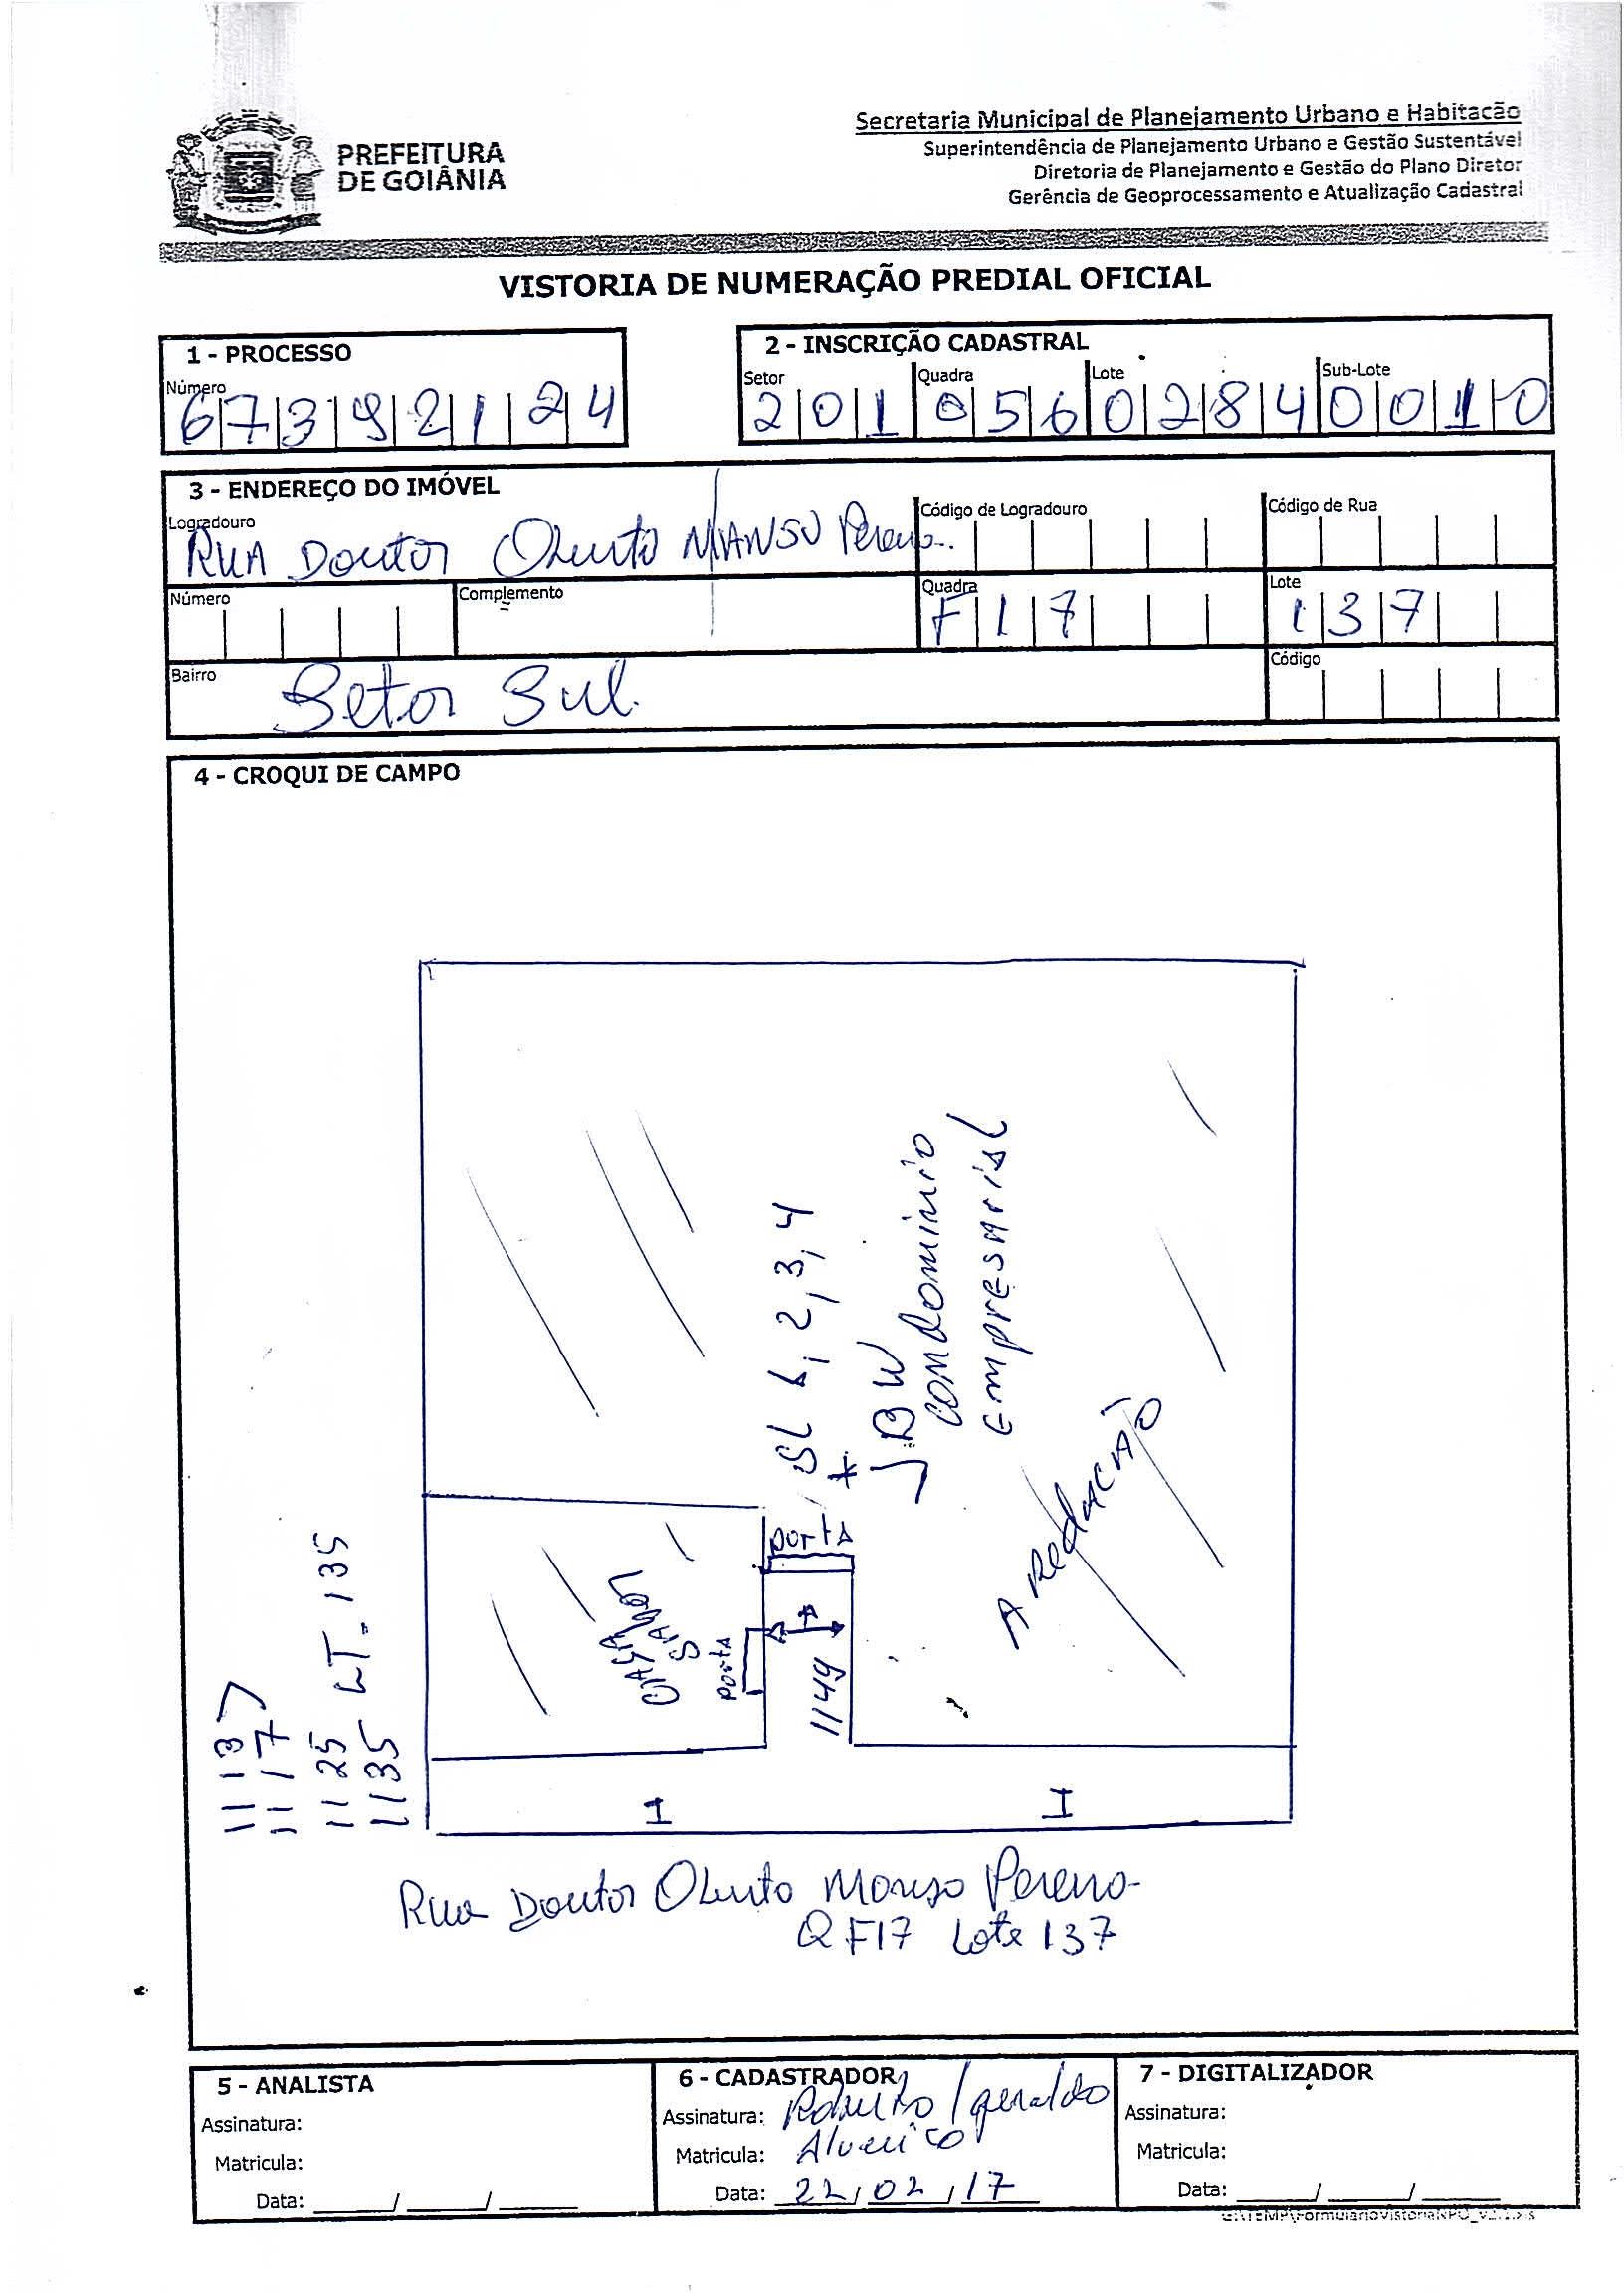 PREFEITURA
DE GOIÂNIA
Secretaria Municipal de Planejamento Urbano e Habitação
Superintendência de Planejamento Urbano e Gestão Sustentável
Diretoria de Planejamento e Gestão do Plano Diretor
Gerência de Geoprocessamento e Atualização Cadastral
VISTORIA DE NUMERAÇÃO PREDIAL OFICIAL
1 - PROCESSO
Número
6 7 3 9 2 1 2 4
2 - INSCRIÇÃO CADASTRAL
Setor Quadra Lote Sub-Lote
2 0 1 0 5 6 0 2 8 4 0 0 1 0
3 - ENDEREÇO DO IMÓVEL
Logradouro Código de Logradouro Código de Rua
RUA Doutor Olinto MANSO Pereira
Número Complemento Quadra Lote
F 1 7 1 3 7
Bairro Código
Setor Sul
4 - CROQUI DE CAMPO
SL 1, 2, 3, 4
* JBW
condominio
Empresarial
A Redação
porta
porta
A
1149
1137
1117
1125
1135 LT. 135
I I
Rua Doutor Olinto Manso Pereira
Q F17 Lote 137
5 - ANALISTA
Assinatura:
Matricula:
Data: / /
6 - CADASTRADOR
Assinatura: Roberto / geraldo
Matricula:
Data: 22/02/17
7 - DIGITALIZADOR
Assinatura:
Matricula:
Data: / /